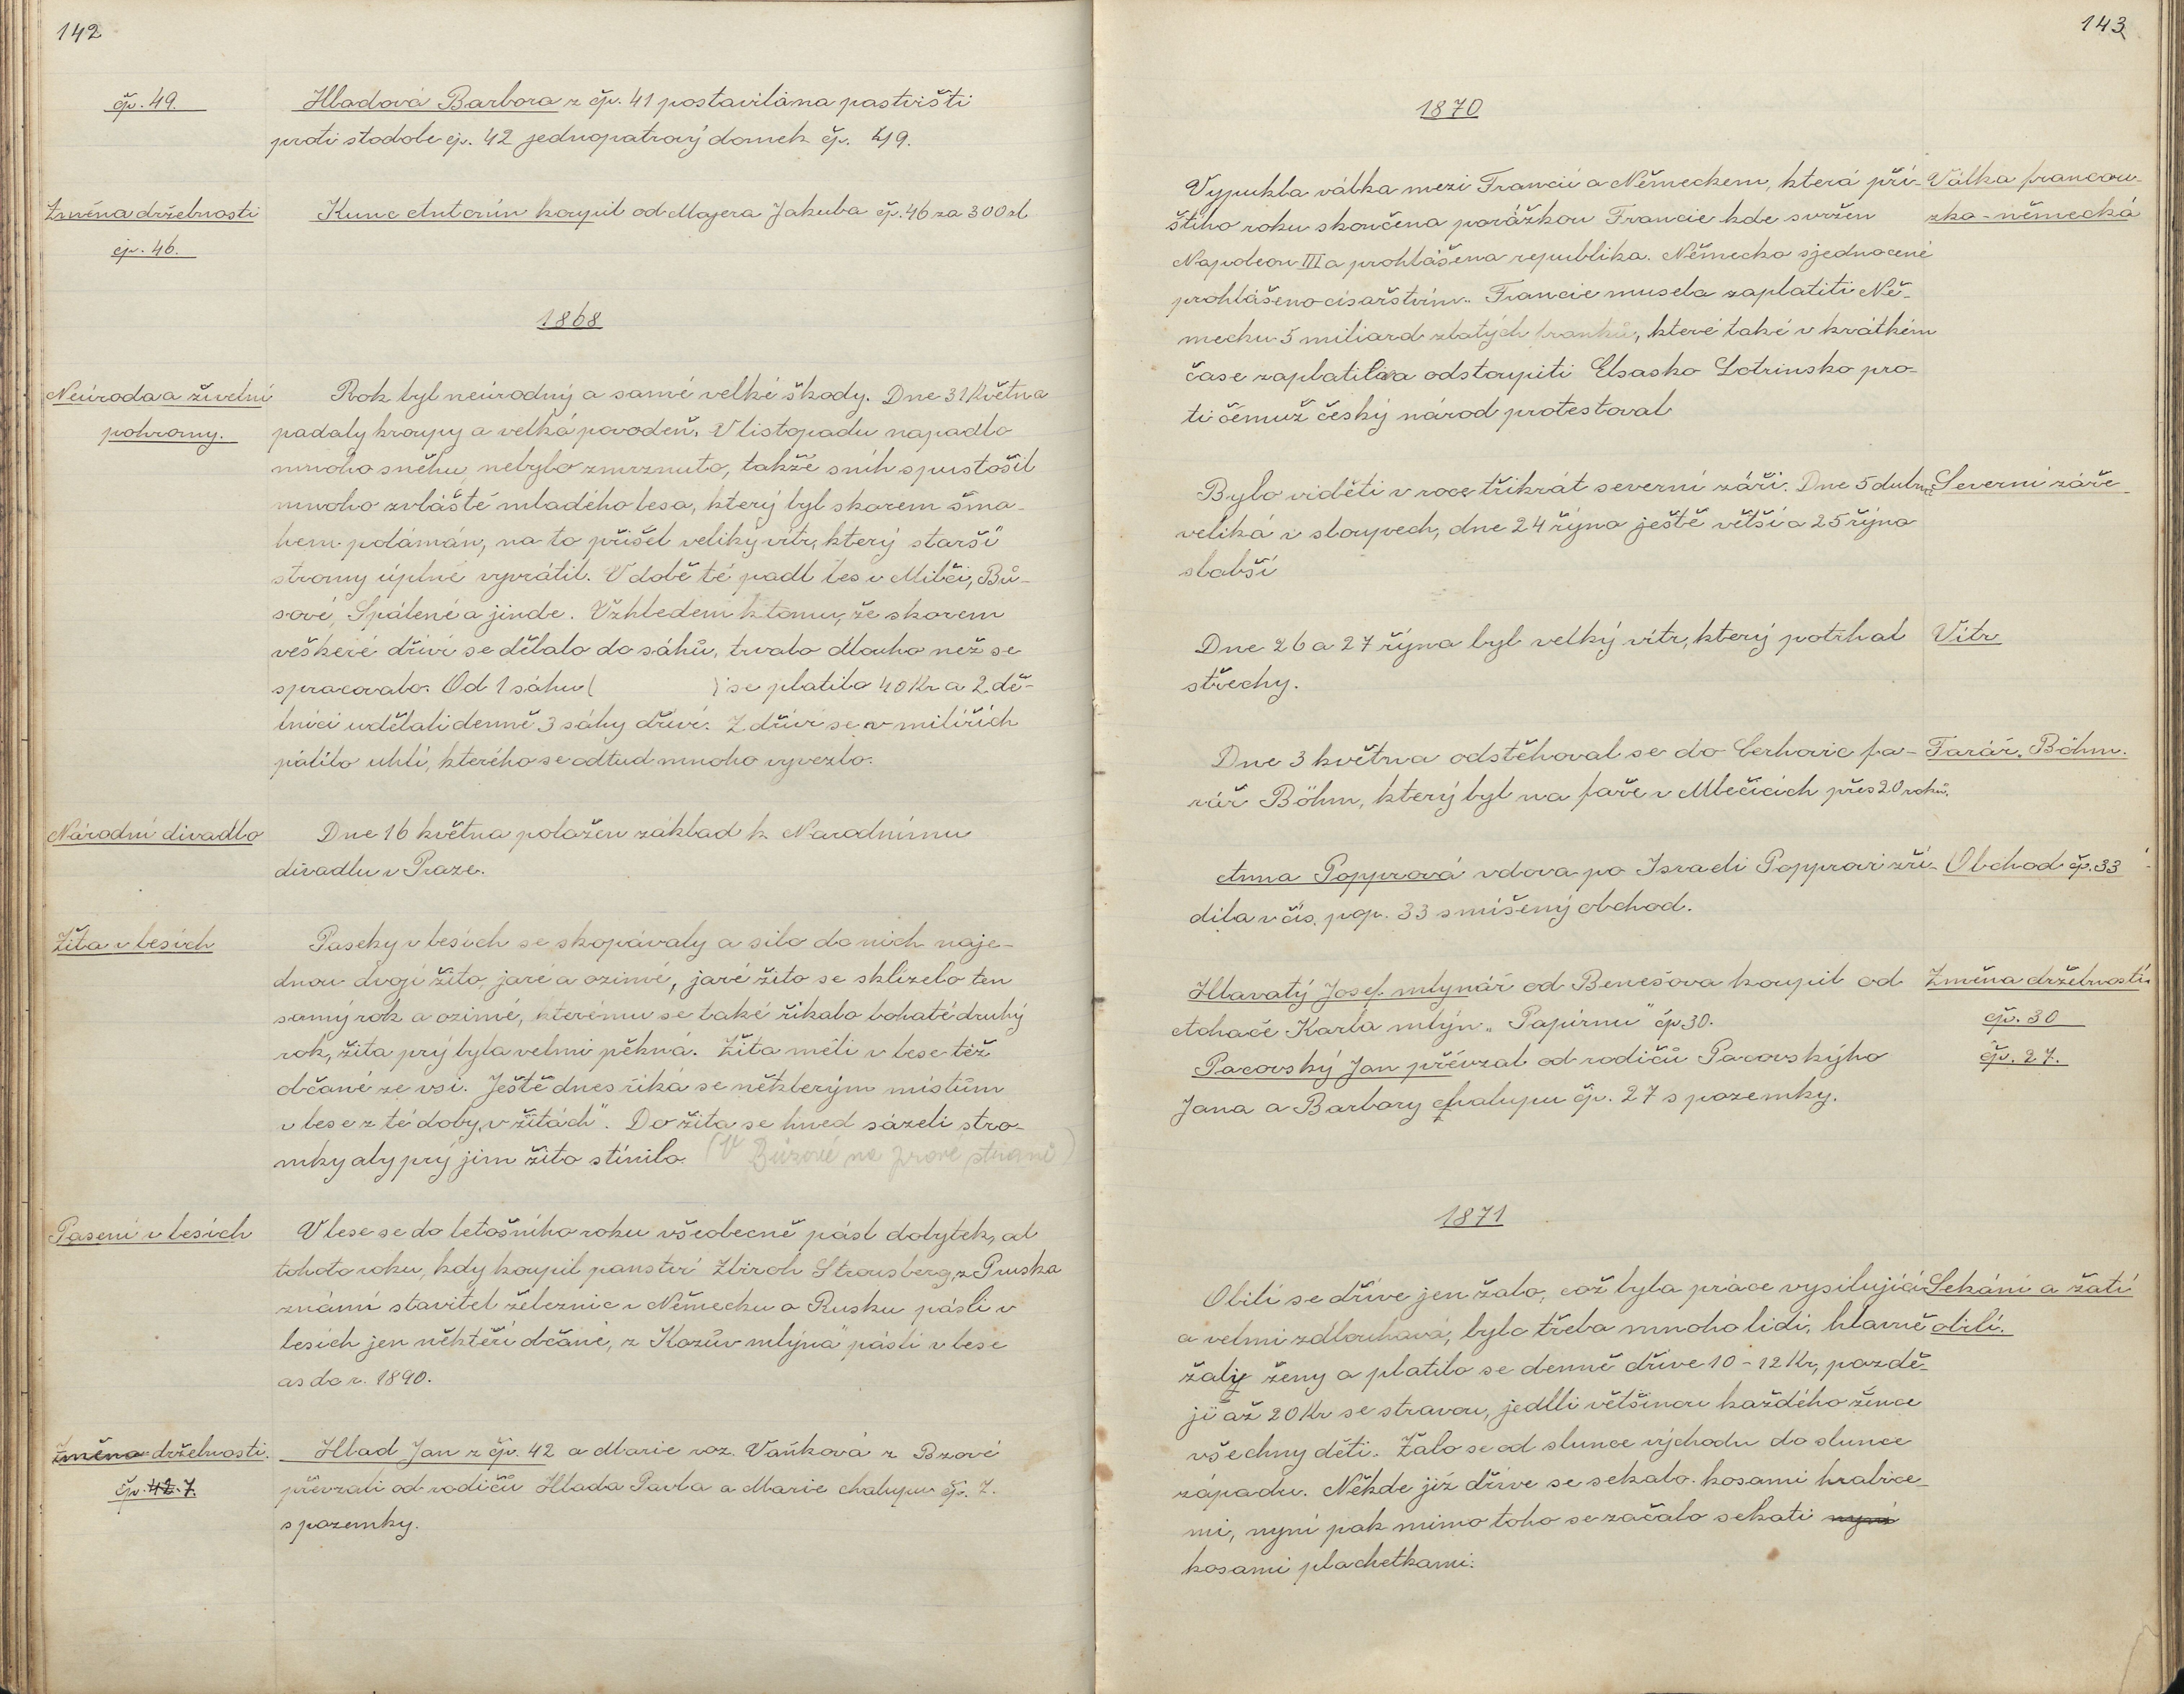 142
čp. 49.
Hladová Barbora z čp. 41 postavila na pastvišti
proti stodole čp. 42 jednopatrový domek čp. 49.
Změna držebnosti
čp. 46.
Kunc Antonín koupil od Majera Jakuba čp. 46 za 300 zl
1868
Neúroda a živelní
pohromy.
Rok byl neúrodný a samé velké škody. Dne 31 Května
padaly kroupy a velká povodeň. V listopadu napadlo
mnoho sněhu, nebylo zmrznuto, takže sníh spustošil
mnoho zvláště mladého lesa, který byl skorem šma-
hem polámán, na to přišel veliký vítr, který starší
stromy úplně vyvrátil. V době té padl les v Milči, Bů-
sové, Spálené a jinde. Vzhledem k tomu, že skorem
veškeré dříví se dělalo do sáhů, trvalo dlouho než se
spracovalo. Od 1 sáhu ( ) se platilo 40 Kr a 2 dě-
lníci udělali denně 3 sáhy dříví. Z dříví se v milířích
pálilo uhlí, kterého se odtud mnoho vyvezlo.
Národní divadlo
Dne 16 května položen základ k Narodnímu
divadlu v Praze.
Žita v lesích
Paseky v lesích se skopávaly a silo do nich naje-
dnou dvojí žito, jaré a ozimé, jaré žito se sklízelo ten
samý rok a ozimé, kterému se také říkalo bohaté druhý
rok, žita prý byla velmi pěkná. Žita měli v lese též
občané ze vsi. Ještě dnes říká se některým místům
v lese z té doby „v žitách". Do žita se hned sázeli stro-
mky aby prý jim žito stínilo. (V Bůzové na pravé straně)
Pasení v lesích
V lese se do letošního roku všeobecně pásl dobytek, od
tohoto roku, kdy koupil panství Zbiroh Strousberg, z Pruska
známí stavitel železnic v Německu a Rusku pásli v
lesích jen někteří občané, z Kozův mlýna" pásli v lese
as do r. 1890.
Změna držebnosti.
čp. 42. 7.
Hlad Jan z čp. 42 a Marie roz. Vaňková z Bzové
převzali od rodičů Hlada Pavla a Marie chalupu čp. 7.
s pozemky.
143
1870
Vypukla válka mezi Francií a Německem, která pří-
štího roku skončena porážkou Francie kde svržen
Napoleon III a prohlášena republika. Německo sjednocené
prohlášeno císařstvím. Francie musela zaplatiti Ně-
mecku 5 miliard zlatých franků, které také v krátkém
čase zaplatila a odstoupiti Elsasko Lotrinsko pro-
ti čemuž český národ protestoval
Válka francou-
zko-německá
Bylo viděti v roce třikrát severní záři. Dne 5 dubna
veliká v sloupech, dne 24 října ještě větší a 25 října
slabší
Severní záře
Dne 26 a 27 října byl velký vítr, který potrhal
střechy.
Vítr
Dne 3 května odstěhoval se do Cerhovic fa-
rář Böhm, který byl na faře v Mlečicích přes 20 roků.
Farář. Böhm.
Anna Popprová vdova po Israeli Popprovi zří-
dila v čís. pop. 33 smíšený obchod.
Obchod čp. 33
Hlavatý Josef mlynář od Benešova koupil od
Lohače Karla mlýn „Papírnu" čp 30.
Pacovský Jan převzal od rodičů Pacovskýho
Jana a Barbory chalupu čp. 27 s pozemky.
Změna držebnosti
čp. 30
čp. 27.
1871
Obilí se dříve jen žalo, což byla práce vysilující
a velmi zdlouhavá, bylo třeba mnoho lidí, hlavně
žaly ženy a platilo se denně dříve 10-12 Kr, pozdě-
ji až 20 Kr se stravou, jedlli většinou každého žence
všechny děti. Žalo se od slunce východu do slunce
západu. Někde již dříve se sekalo kosami hrabice-
mi, nyní pak mimo toho se začalo sekati nyní
kosami plachetkami.
Sekání a žatí
obilí.